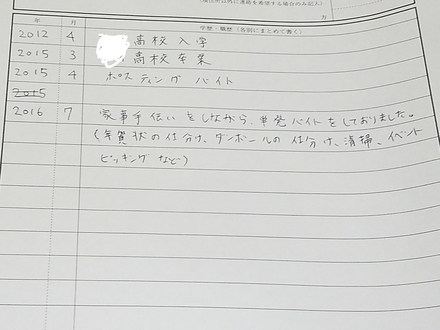 (現住所以外に連絡を希望する場合のみ記入)
方
年 月 学歴・職歴(各別にまとめて書く)
2012 4 高校 入学
2015 3 高校 卒業
2015 4 ポスティング バイト
2015
2016 7 家事手伝いをしながら、単発バイトをしておりました。
(年賀状の仕分け、ダンボールの仕分け、清掃、イベント
ピッキング など)